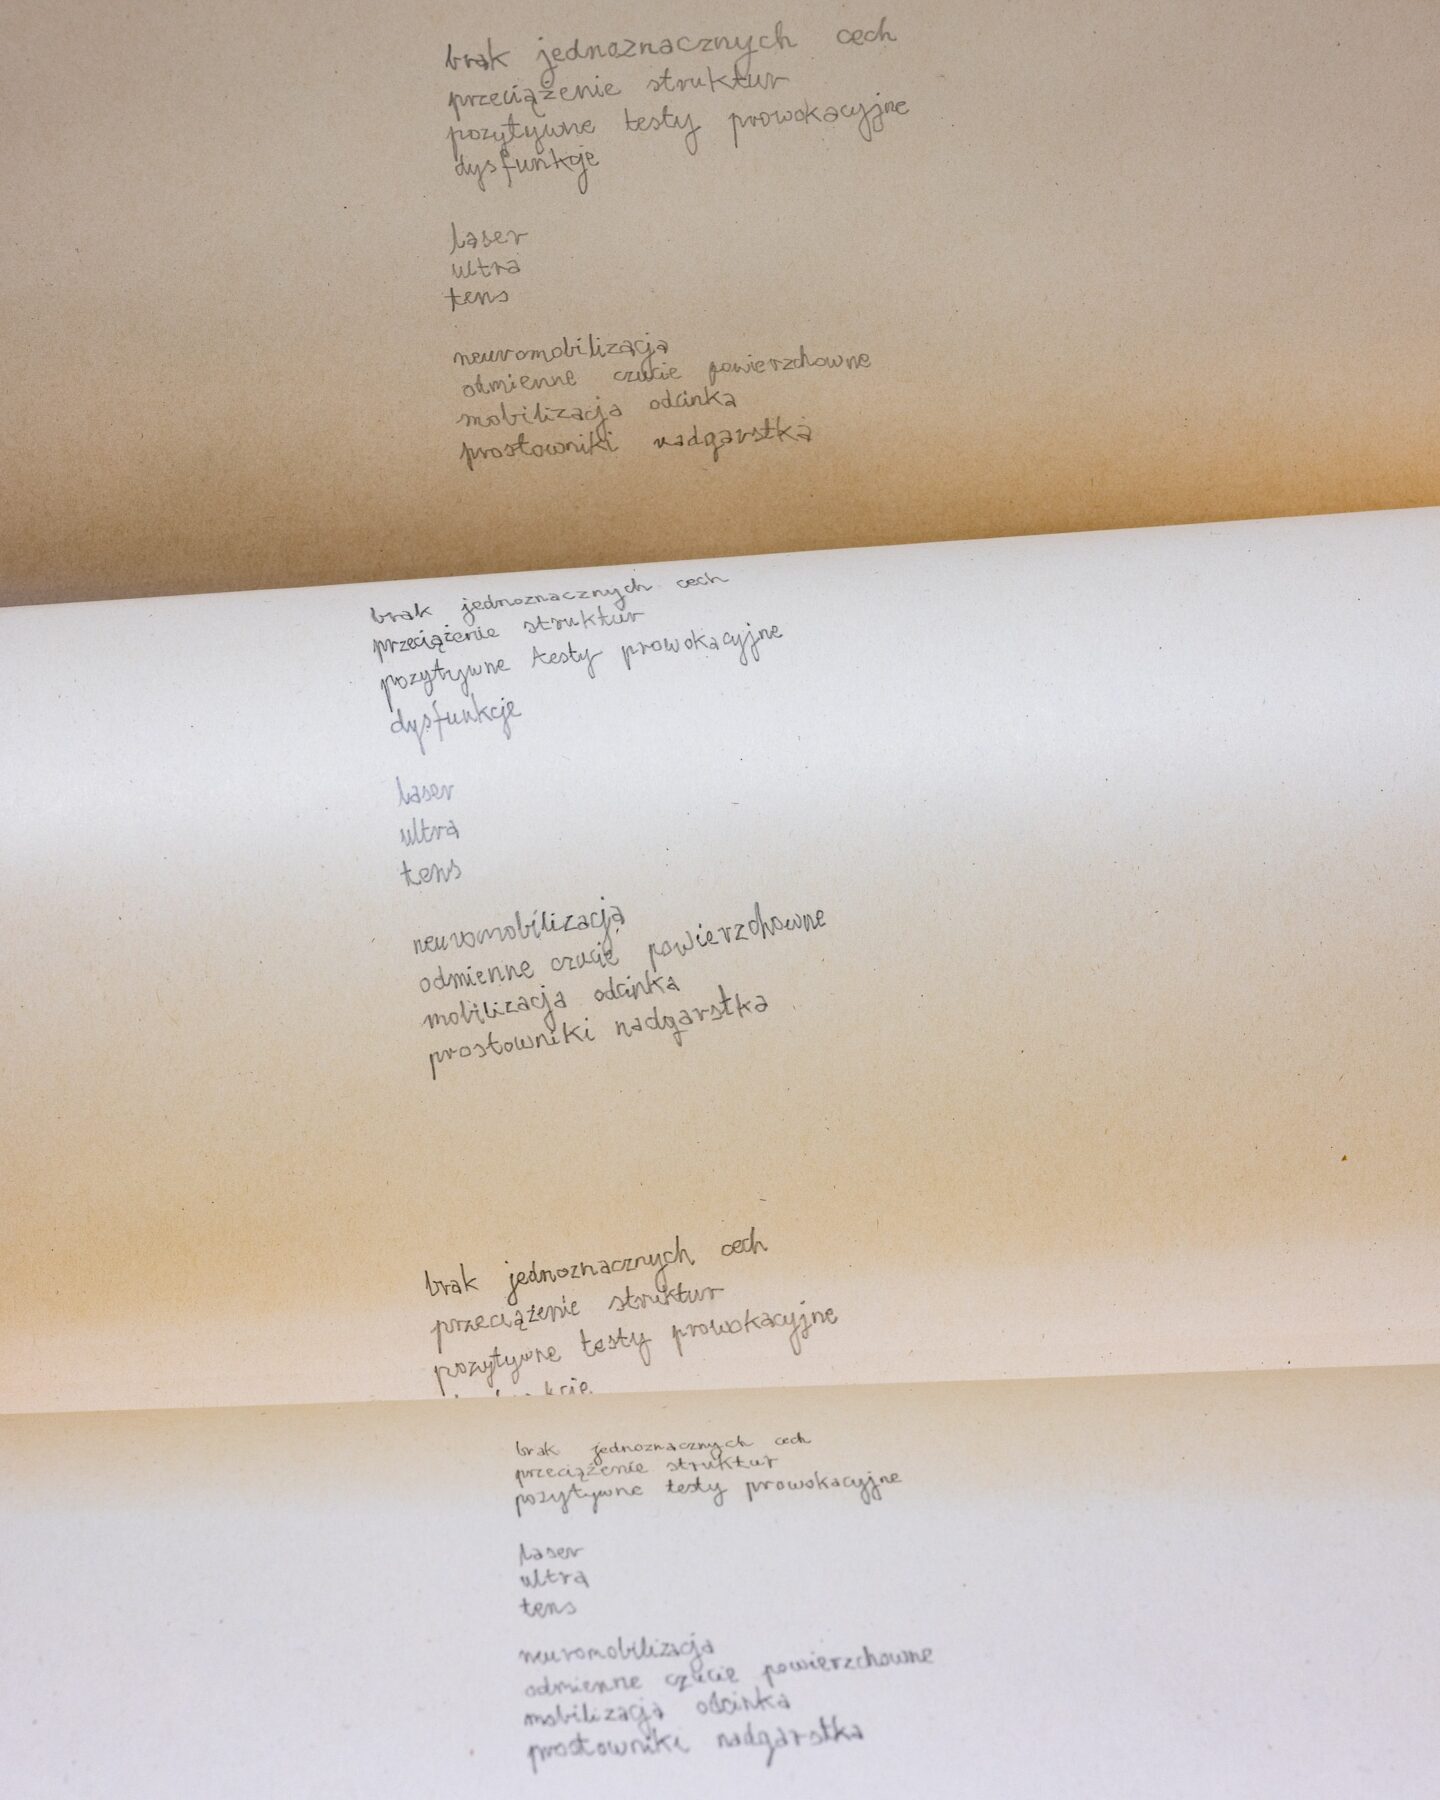 brak jednoznacznych cech
przeciążenie struktur
pozytywne testy prowokacyjne
dysfunkcje
laser
ultra
tens
neuromobilizacja
odmienne czucie powierzchowne
mobilizacja odcinka
prostowniki nadgarstka
brak jednoznacznych cech
przeciążenie struktur
pozytywne testy prowokacyjne
dysfunkcje
laser
ultra
tens
neuromobilizacja
odmienne czucie powierzchowne
mobilizacja odcinka
prostowniki nadgarstka
brak jednoznacznych cech
przeciążenie struktur
pozytywne testy prowokacyjne
brak jednoznacznych cech
przeciążenie struktur
pozytywne testy prowokacyjne
laser
ultra
tens
neuromobilizacja
odmienne czucie powierzchowne
mobilizacja odcinka
prostowniki nadgarstka